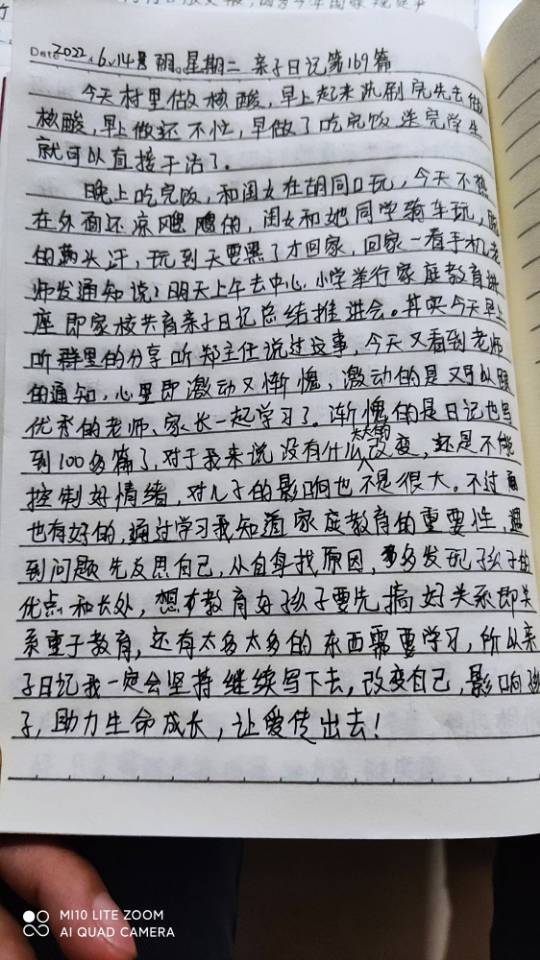 Date 2022.6.14号 阴。星期二 亲子日记第169篇
今天村里做核酸,早上起来洗刷完先去做
核酸,早上做还不忙,早做了吃完饭送完学生
就可以直接干活了。
晚上吃完饭,和闺女在胡同口玩,今天不热
在外面还凉飕飕的,闺女和她同学骑车玩,
的满头汗,玩到天要黑了才回家,回家一看手机老
师发通知说:明天上午去中心小学举行家庭教育讲
座即家校共育亲子日记总结推进会。其实今天早上
听群里的分享听郑主任说过这事,今天又看到老师
的通知,心里即激动又惭愧,激动的是又可以跟
优秀的老师、家长一起学习了。渐愧的是日记也写
到100多篇了,对于我来说没有什么太大的改变,还是不能
控制好情绪,对儿子的影响也不是很大。不过
也有好的,通过学习我知道家庭教育的重要性,遇
到问题先反思自己,从自身找原因,多多发现孩子的
优点和长处,想要教育好孩子要先搞好关系即关
系重于教育,还有太多太多的东西需要学习,所以亲
子日记我一定会坚持继续写下去,改变自己,影响孩
子,助力生命成长,让爱传出去!
MI10 LITE ZOOM
AI QUAD CAMERA